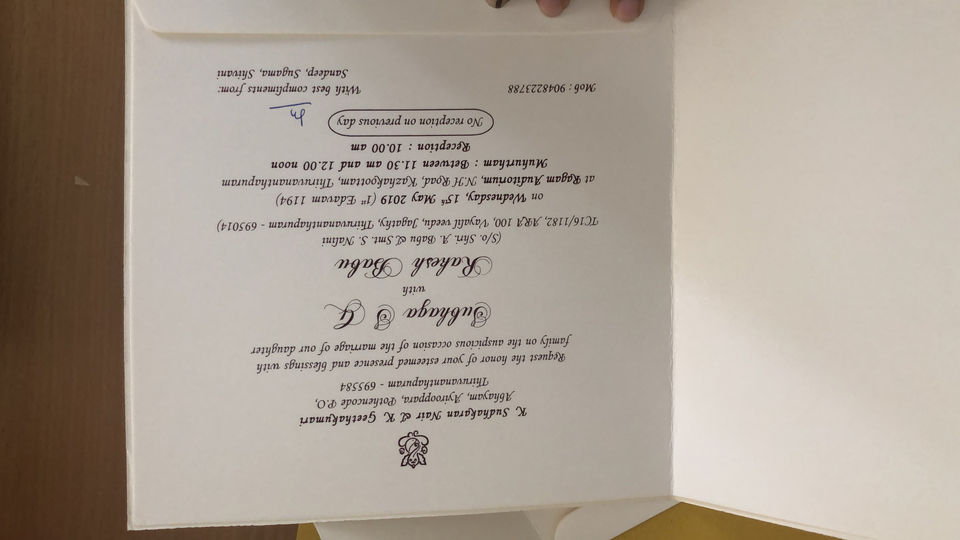 K. Sudhakaran Nair & K. Geethakumari
Abhayam, Ayirooppara, Pothencode P.O,
Thiruvananthapuram - 695584
Request the honor of your esteemed presence and blessings with
family on the auspicious occasion of the marriage of our daughter
Subhaga S G
with
Rakesh Babu
(S/o. Shri. A. Babu & Smt. S. Nalini
TC16/1182, ARA 100, Vayalil veedu, Jagathy, Thiruvananthapuram - 695014)
on Wednesday, 15th May 2019 (1st Edavam 1194)
at Ragam Auditorium, N.H Road, Kazhakoottam, Thiruvananthapuram
Muhurtham : Between 11.30 am and 12.00 noon
Reception : 10.00 am
No reception on previous day
Mob : 9048223788
With best compliments from:
Sandeep, Sugama, Shivani